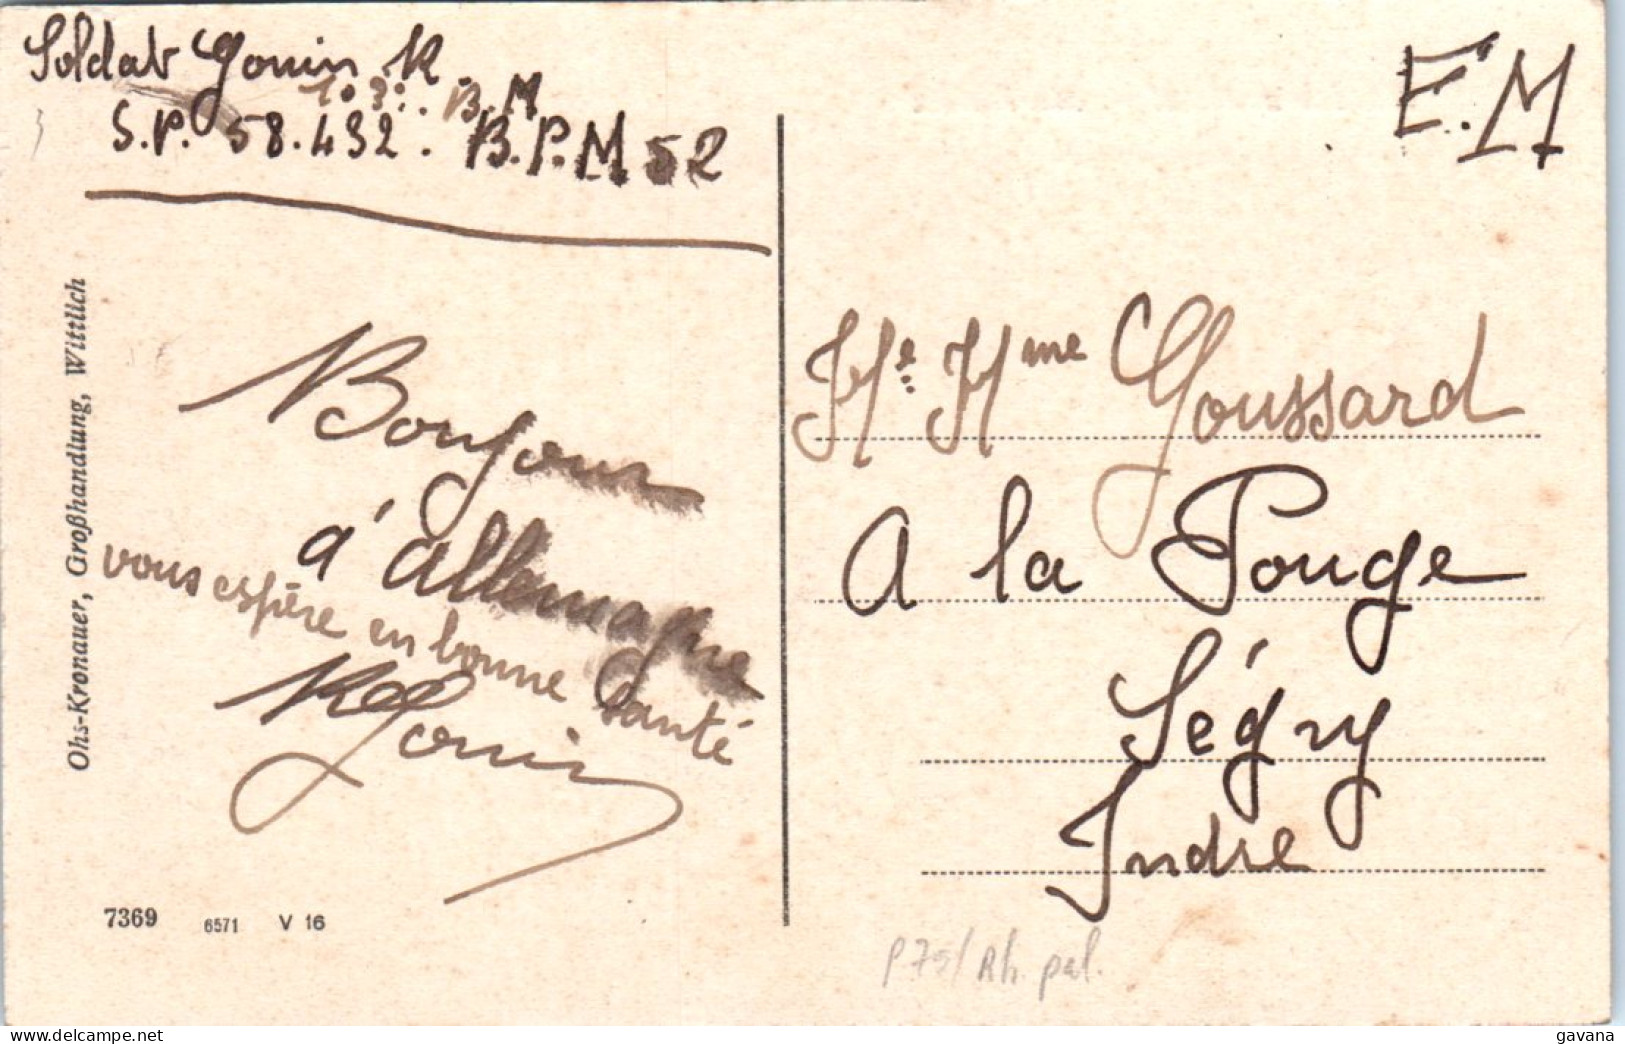 Soldat Gouin R
103e. B.M
S.P. 58.432. B.P.M 52
E.M
Ohs-Kronauer, Großhandlung, Wittlich
Bonjour
d'allemagne
vous espère en bonne santé
R Gouin
Mr. Mme Goussard
A la Pouge
Ségry
Indre
7369 6571 V 16
P75/Rh. pal.
delcampe.net
gavana